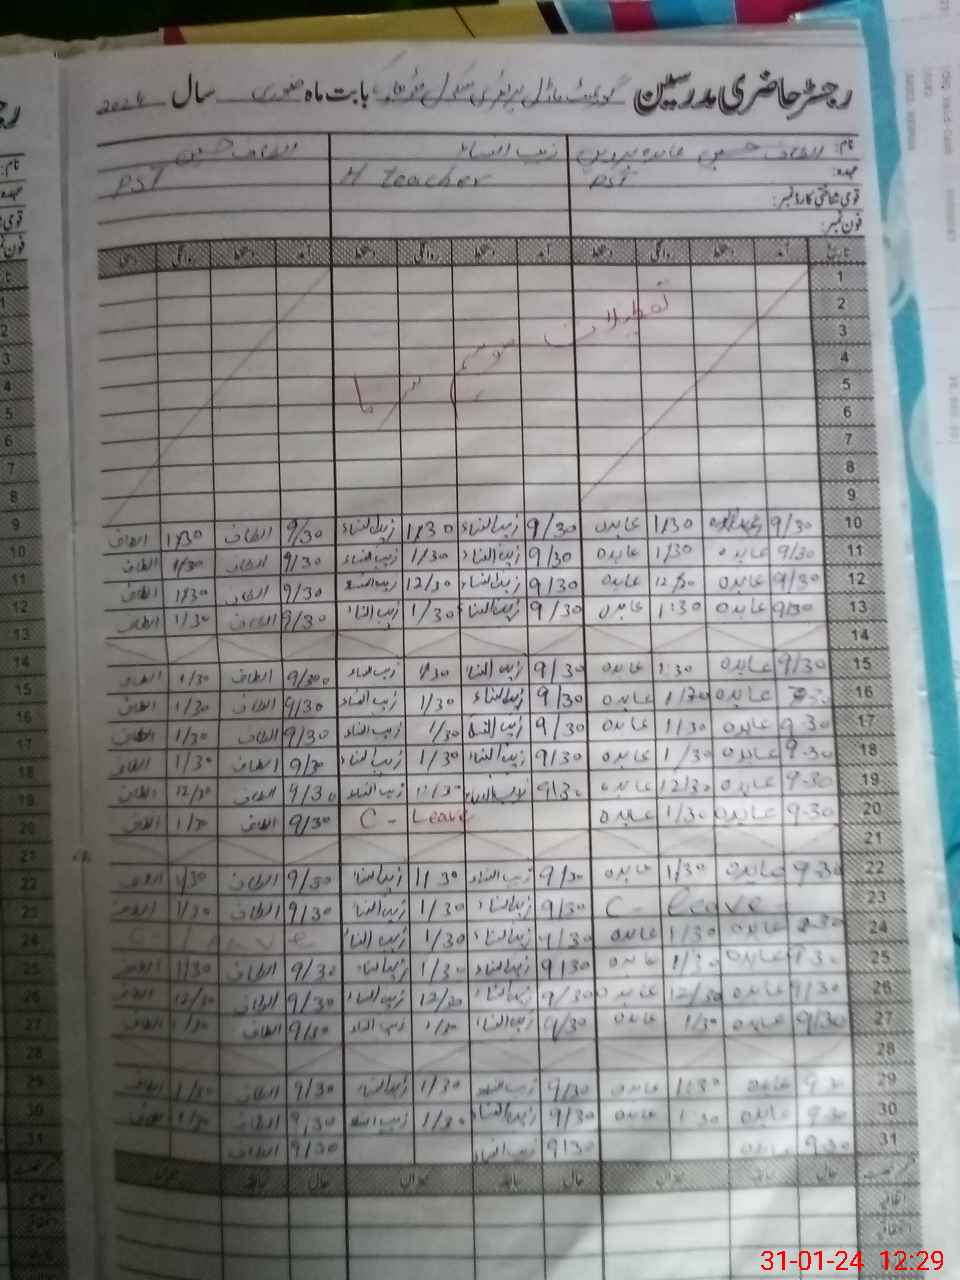 رجسٹر حاضری مدرسین گورنمنٹ ماڈل پرائمری سکول بابت ماہ جنوری سال 2024
نام: عابدہ پروین زیب النساء الطاف حسین
عہدہ: PST H teacher PST
قومی شناختی کارڈ نمبر:
فون نمبر:
تاریخ آمد دستخط روانگی دستخط آمد دستخط روانگی دستخط آمد دستخط روانگی دستخط
1
2
تعطیلات موسم سرما
3
4
5
6
7
8
9
10 9/30 1/30 عابدہ 9/30 زیب النساء 1/30 زیب النساء 9/30 الطاف 1/30 الطاف
11 9/30 عابدہ 1/30 عابدہ 9/30 زیب النساء 1/30 زیب النساء 9/30 الطاف 1/30 الطاف
12 9/30 عابدہ 12/30 عابدہ 9/30 زیب النساء 12/30 زیب النساء 9/30 الطاف 1/30 الطاف
13 9/30 عابدہ 1:30 عابدہ 9/30 زیب النساء 1/30 زیب النساء 9/30 الطاف 1/30 الطاف
14
15 9/30 عابدہ 1:30 عابدہ 9/30 زیب النساء 1/30 زیب النساء 9/30 الطاف 1/30 الطاف
16 عابدہ 1/30 عابدہ 9/30 زیب النساء 1/30 زیب النساء 9/30 الطاف 1/30 الطاف
17 9-30 عابدہ 1/30 عابدہ 9/30 زیب النساء 1/30 زیب النساء 9/30 الطاف 1/30 الطاف
18 9-30 عابدہ 1/30 عابدہ 9/30 زیب النساء 1/30 زیب النساء 9/30 الطاف 1/30 الطاف
19 9-30 عابدہ 12/30 عابدہ 9/30 زیب النساء زیب النساء 9/30 الطاف 12/30 الطاف
20 9-30 عابدہ 1/30 عابدہ C - Leave 9/30 الطاف 1/30 الطاف
21
22 9-30 عابدہ 1/30 عابدہ 9/30 زیب النساء 1/30 زیب النساء 9/30 الطاف 1/30 الطاف
23 C - Leave - 9/30 زیب النساء 1/30 زیب النساء 9/30 الطاف 1/30 الطاف
24 عابدہ 1/30 عابدہ 9/30 زیب النساء 1/30 زیب النساء C - Leave
25 9-30 عابدہ 1/30 عابدہ 9/30 زیب النساء 1/30 زیب النساء 9/30 الطاف 1/30 الطاف
26 9/30 عابدہ 12/30 عابدہ 9/30 زیب النساء 12/30 زیب النساء 9/30 الطاف 12/30 الطاف
27 9/30 عابدہ 1/30 عابدہ 9/30 زیب النساء 1/30 زیب النساء 9/30 الطاف 1/30 الطاف
28
29 9-30 عابدہ 1:30 عابدہ 9/30 زیب النساء 1/30 زیب النساء 9/30 الطاف 1/30 الطاف
30 9-30 عابدہ 1:30 عابدہ 9/30 زیب النساء 1/30 زیب النساء 9/30 الطاف 1/30 الطاف
31 9-30 عابدہ 9/30 زیب النساء 9/30 الطاف
حال سابقہ میزان حال سابقہ میزان حال سابقہ میزان
اتفاقی
31-01-24 12:29